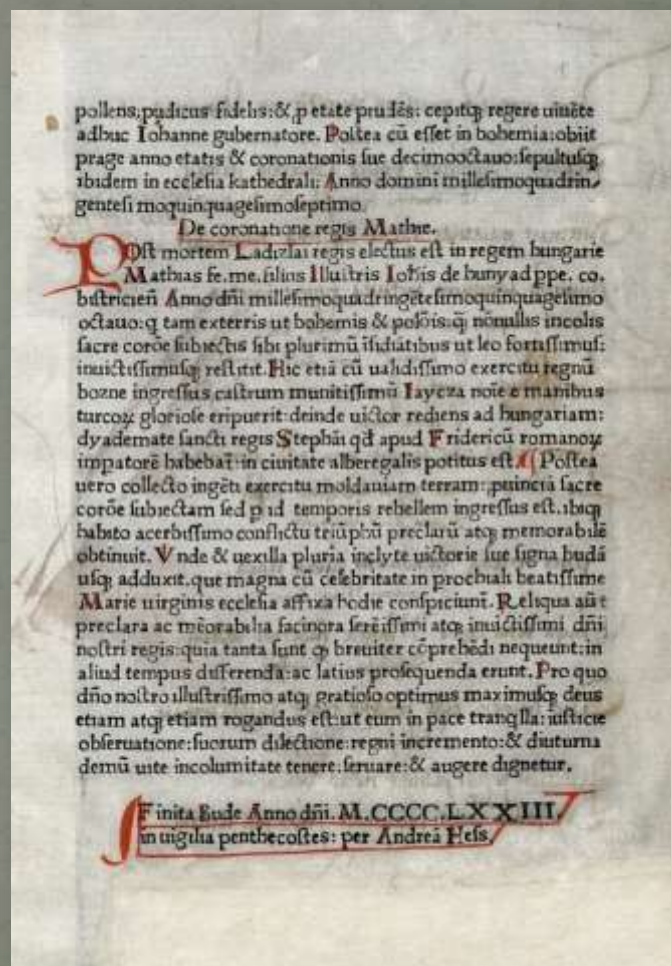 pollens: pudicus fidelis: & ꝓ etate prudẽs: cepitqꝫ regere uiuẽte
adhuc Iohanne gubernatore. Postea cũ esset in bohemia: obiit
prage anno etatis & coronationis sue decimooctauo: sepultusqꝫ
ibidem in ecclesia kathedrali: Anno domini millesimoquadrin-
gentesimoquinquagesimoseptimo.
De coronatione regis Mathie.
POst mortem Ladizlai regis electus est in regem hungarie
Mathias fe. me. filius Illustris Iohis de hunyad ppe. co.
bistricieñ Anno dñi millesimoquadringẽtesimoquinquagesimo
octauo: q tam exterris ut bohemis & polõis: q̃ nõnullis incolis
sacre corõe subiectis sibi plurimũ ĩsidiatibus ut leo fortissimus:
inuictissimusqꝫ restitit. Hic etiã cũ ualidissimo exercitu regnũ
bozne ingressus castrum munitissimũ Iaycza noĩe e manibus
turcoꝝ gloriose eripuerit: deinde uictor rediens ad hungariam:
dyademate sancti regis Stephãi qd apud Fridericũ romanoꝝ
impatorẽ habebat̃: in ciuitate alberegalis potitus est. ¶ Postea
uero collecto ingẽti exercitu moldauiam terram: ꝓuinciã sacre
corõe subiectam sed p id temporis rebellem ingressus est. ibiqꝫ
habito acerbissimo conflictu triũphũ preclarũ atqꝫ memorabilẽ
obtinuit. Vnde & uexilla pluria inclyte uictorie sue signa budã
usqꝫ adduxit. que magna cũ celebritate in prochiali beatissime
Marie uirginis ecclesia affixa hodie conspiciunt̃. Reliqua aũt
preclara ac mẽorabilia facinora serẽissimi atqꝫ inuictissimi dñi
nostri regis: quia tanta sunt qꝫ breuiter cõprehẽdi nequeunt: in
aliud tempus differenda: ac latius prosequenda erunt. Pro quo
dño nostro illustrissimo atqꝫ gratioso optimus maximusqꝫ deus
etiam atqꝫ etiam rogandus est: ut eum in pace tranq̃lla: iusticie
obseruatione: suorum dilectione: regni incremento: & diuturna
demũ uite incolumitate tenere: seruare: & augere dignetur.
Finita Bude Anno dñi. M.CCCC.LXXIII.
in uigilia penthecostes: per Andreã Hess.